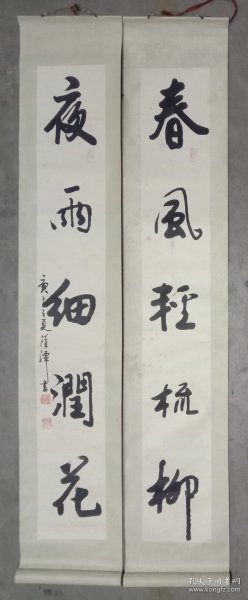 春風輕梳柳
夜雨細潤花
孔夫子旧书网